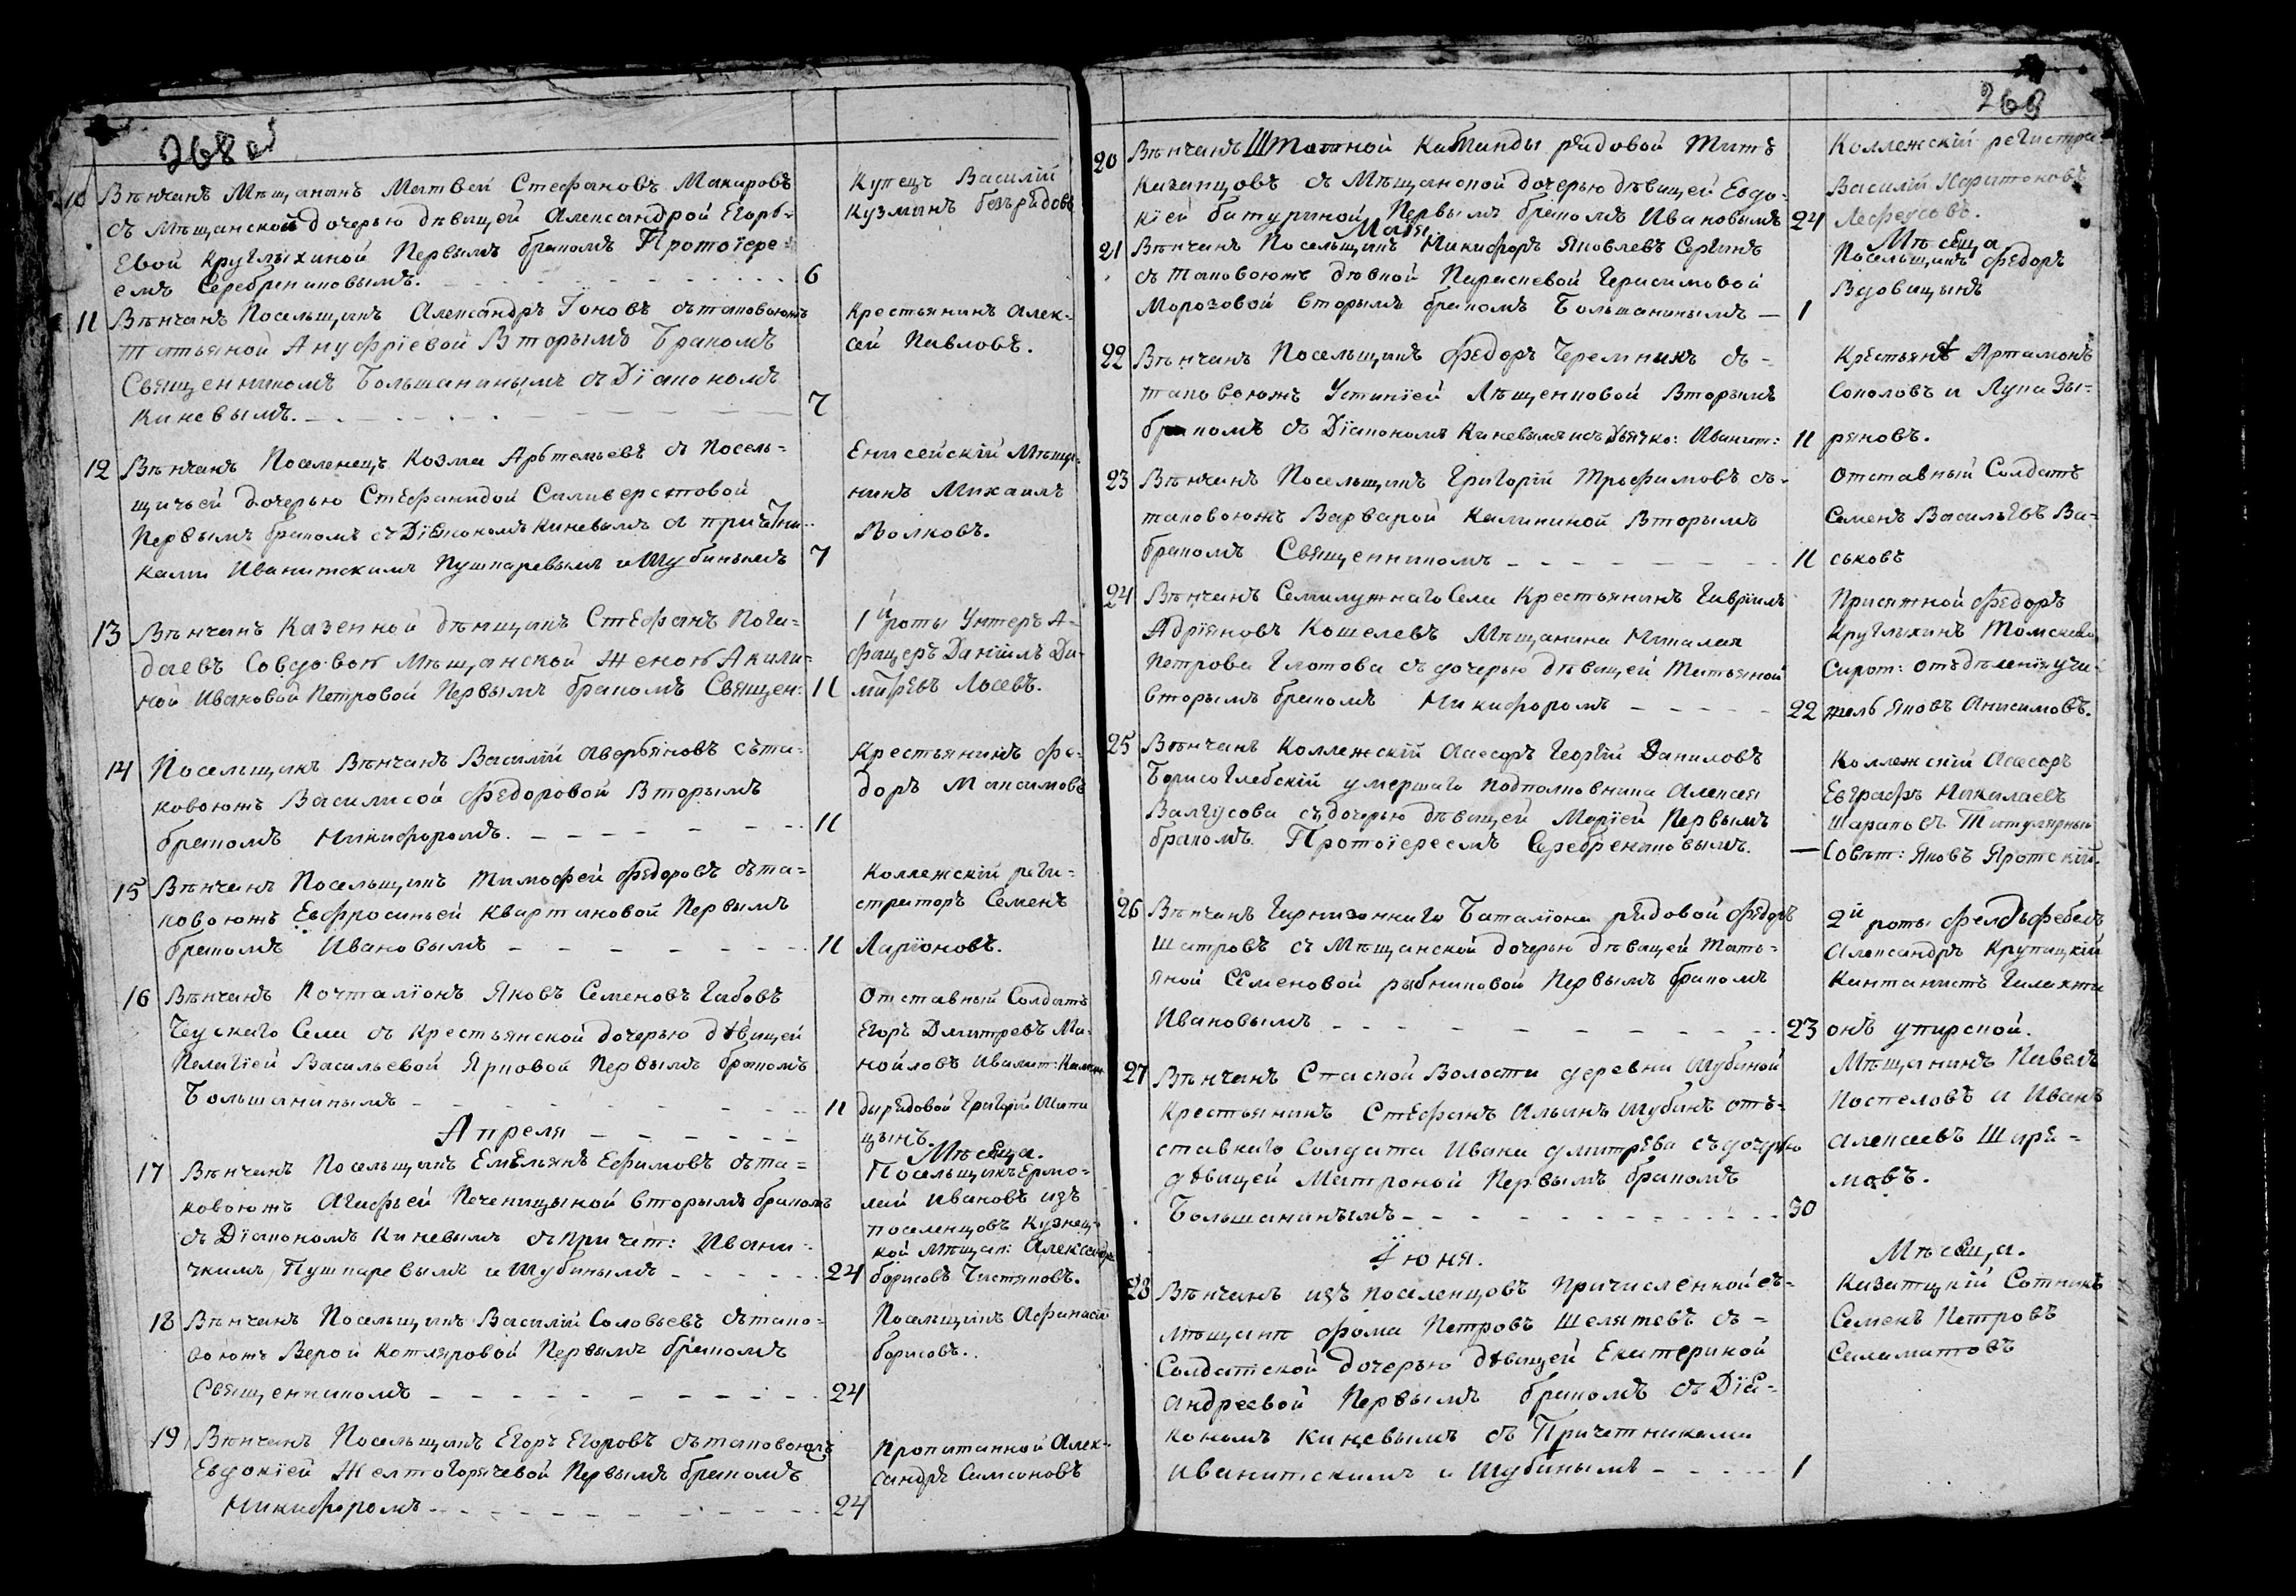 268 об
10 Венчанъ Мѣщанинъ Матвей Стефановъ Макаровъ
съ мѣщанской дочерью дѣвицей Александрой Егорь-
евой Круглыхиной Первымъ бракомъ Протоіере-
емъ Серебрениковымъ. 6
Купецъ Василій
Кузминъ безрядовъ
11 Вѣнчанъ Посельщикъ Александръ Іоновъ стаковоюжъ
Татьяной Ануфріевой Вторымъ Бракомъ
Священникомъ Большанинымъ съ Діакономъ
Киневымъ. 7
Крестьянинъ Алек-
сей Павловъ.
12 Вѣнчанъ Поселенецъ Козма Артемьевъ съ посель-
щичьей дочерью Стефанидой Силиверстовой
Первымъ бракомъ съ Діякономъ Киневымъ съ причетни-
ками Иванитскимъ Пушкаревымъ и Шубинымъ 7
Енисейскій Мѣща-
нинъ Михаилъ
Волковъ.
13 Вѣнчанъ Казенной дѣнщикъ Стефанъ Пога-
даевъ совдовою мѣщанской женою Акили-
ной Ивановой Петровой Первымъ бракомъ Священ: 11
1й роты Унтеръ А-
фицеръ Данилъ Ди-
митревъ Лосевъ.
14 Посельщикъ Вѣнчанъ Василій Аверьяновъ ста-
ковоюжъ Василисой Федоровой Вторымъ
бракомъ Никифоромъ. 11
Крестьянинъ Фе-
доръ Максимовъ
15 Вѣнчанъ Посельщикъ Тимофей Федоровъ ста-
ковоюжъ Евфросиньей Квартаковой Первымъ
бракомъ Ивановымъ 11
Коллежскій реги-
страторъ Семенъ
Ларіоновъ.
16 Вѣнчанъ Почталіонъ Яковъ Семеновъ Габовъ
Чускаго Села съ Крестьянской дочерью дѣвицей
Пелагіей Васильевой Ярковой Первымъ бракомъ
Большанинымъ 11
Отставный Солдатъ
Егоръ Дмитревъ Ма-
нойловъ
дырядовой Григорій Шипи
цынъ.
Апреля
Мѣсяца.
17 Вѣнчанъ Посельщикъ Емельянъ Ефимовъ ста-
ковоюжъ Агафьей Печеницыной вторымъ бракомъ
съ Діакономъ Киневымъ съ причет: Ивани-
чкимъ Пушкаревымъ и Шубинымъ 24
Посельщикъ Ермо-
лай Ивановъ изъ
поселенцовъ Кузнец-
кой Мѣщан: Александръ
борисовъ Чистяковъ.
18 Вѣнчанъ Посельщикъ Василій Соловьевъ стако-
воюжъ Верой Котляровой Первымъ бракомъ
Священникомъ 24
Посельщикъ Афанасій
борисовъ.
19 Вѣнчанъ Посельщикъ Егоръ Егоровъ стаковоюжъ
Евдокіей Желтогорячевой Первымъ бракомъ
Никифоромъ 24
Пропитанной Алек-
сандръ Самсоновъ
269
20 Вѣнчанъ Штатной Каманды рядовой Титъ
Казанцовъ съ Мѣщанской дочерью дѣвицей Евдо-
кіей батуриной Первымъ бракомъ Ивановымъ 24
Коллежскій регистра
Василій Харитоновъ
Мая
Мѣсяца
21 Вѣнчанъ Посельщикъ Никифоръ Яковлевъ Сергинъ
стаковоюжъ дѣвкой Парасковой Герасимовой
Морозовой вторымъ бракомъ Большанинымъ 1
Посельщикъ Федоръ
Вдовицынъ
22 Вѣнчанъ Посельщикъ Федоръ Черемнихъ съ-
таковоюжъ Устиніей Лѣщенковой Вторымъ
бракомъ съ Діакономъ Киневымъ исъ Дьячко: Иванит: 11
Крестьяня Артамонъ
Соколовъ и Лука Зы-
ряновъ.
23 Вѣнчанъ Посельщикъ Григорій Трофимовъ съ-
таковоюжъ Варварой Калининой Вторымъ
бракомъ Священникомъ 11
Отставный Солдатъ
Семенъ Васильевъ Ва-
ськовъ
24 Вѣнчанъ Семилужнаго Села Крестьянинъ Гавріилъ
Адріяновъ Кошелевъ Мѣщанина Николая
Петрова Глотова съ дочерью дѣвицей Татьяной
вторымъ бракомъ Никифоромъ 22
Присяжной Федоръ
Круглыхинъ Томскаго
Сирот: отъдѣленія учи-
тель Яковъ Анисимовъ.
25 Вѣнчанъ Коллежскій Асесоръ Георгій Даниловъ
Борисоглебскій умершаго Подполковника Алексея
Валгусова съ дочерью дѣвицей Маріей Первымъ
бракомъ. Протоіереемъ Серебрениковымъ. —
Коллежскій Асесоръ
Евграфъ Николаевъ
Шараповъ Титулярный
Совѣт: Яковъ Яротскій.
26 Вѣнчанъ Гарнизоннаго Баталіона рядовой Федоръ
Шатровъ съ Мѣщанской дочерью дѣвицей Тать-
яной Семеновой рыбниковой Первымъ бракомъ
Ивановымъ 23
2й роты фелдъфебель
Александръ Крупацкій
Кантанистъ Галакти
онъ упирской.
27 Вѣнчанъ Спаской Волости деревни Шубиной
Крестьянинъ Стефанъ Ильинъ Шубинъ отъ-
ставнаго Солдата Ивана дмитрева съ дочерью
дѣвицей Матроной Первымъ бракомъ
Большанинымъ 30
Мѣщанинъ Павелъ
Поспеловъ и Иванъ
Алексеевъ Шаря-
мовъ.
Іюня.
Мѣсяца.
28 Вѣнчанъ изъ поселенцовъ Причисленной въ-
мѣщане Фома Петровъ Шелятевъ съ-
Солдатской дочерью дѣвицей Екатериной
Андреевой Первымъ бракомъ съ Діа-
кономъ Киневымъ съ Причетниками
Иванитскимъ и Шубинымъ 1
Казатцкій Сотникъ
Семенъ Петровъ
Саламатовъ